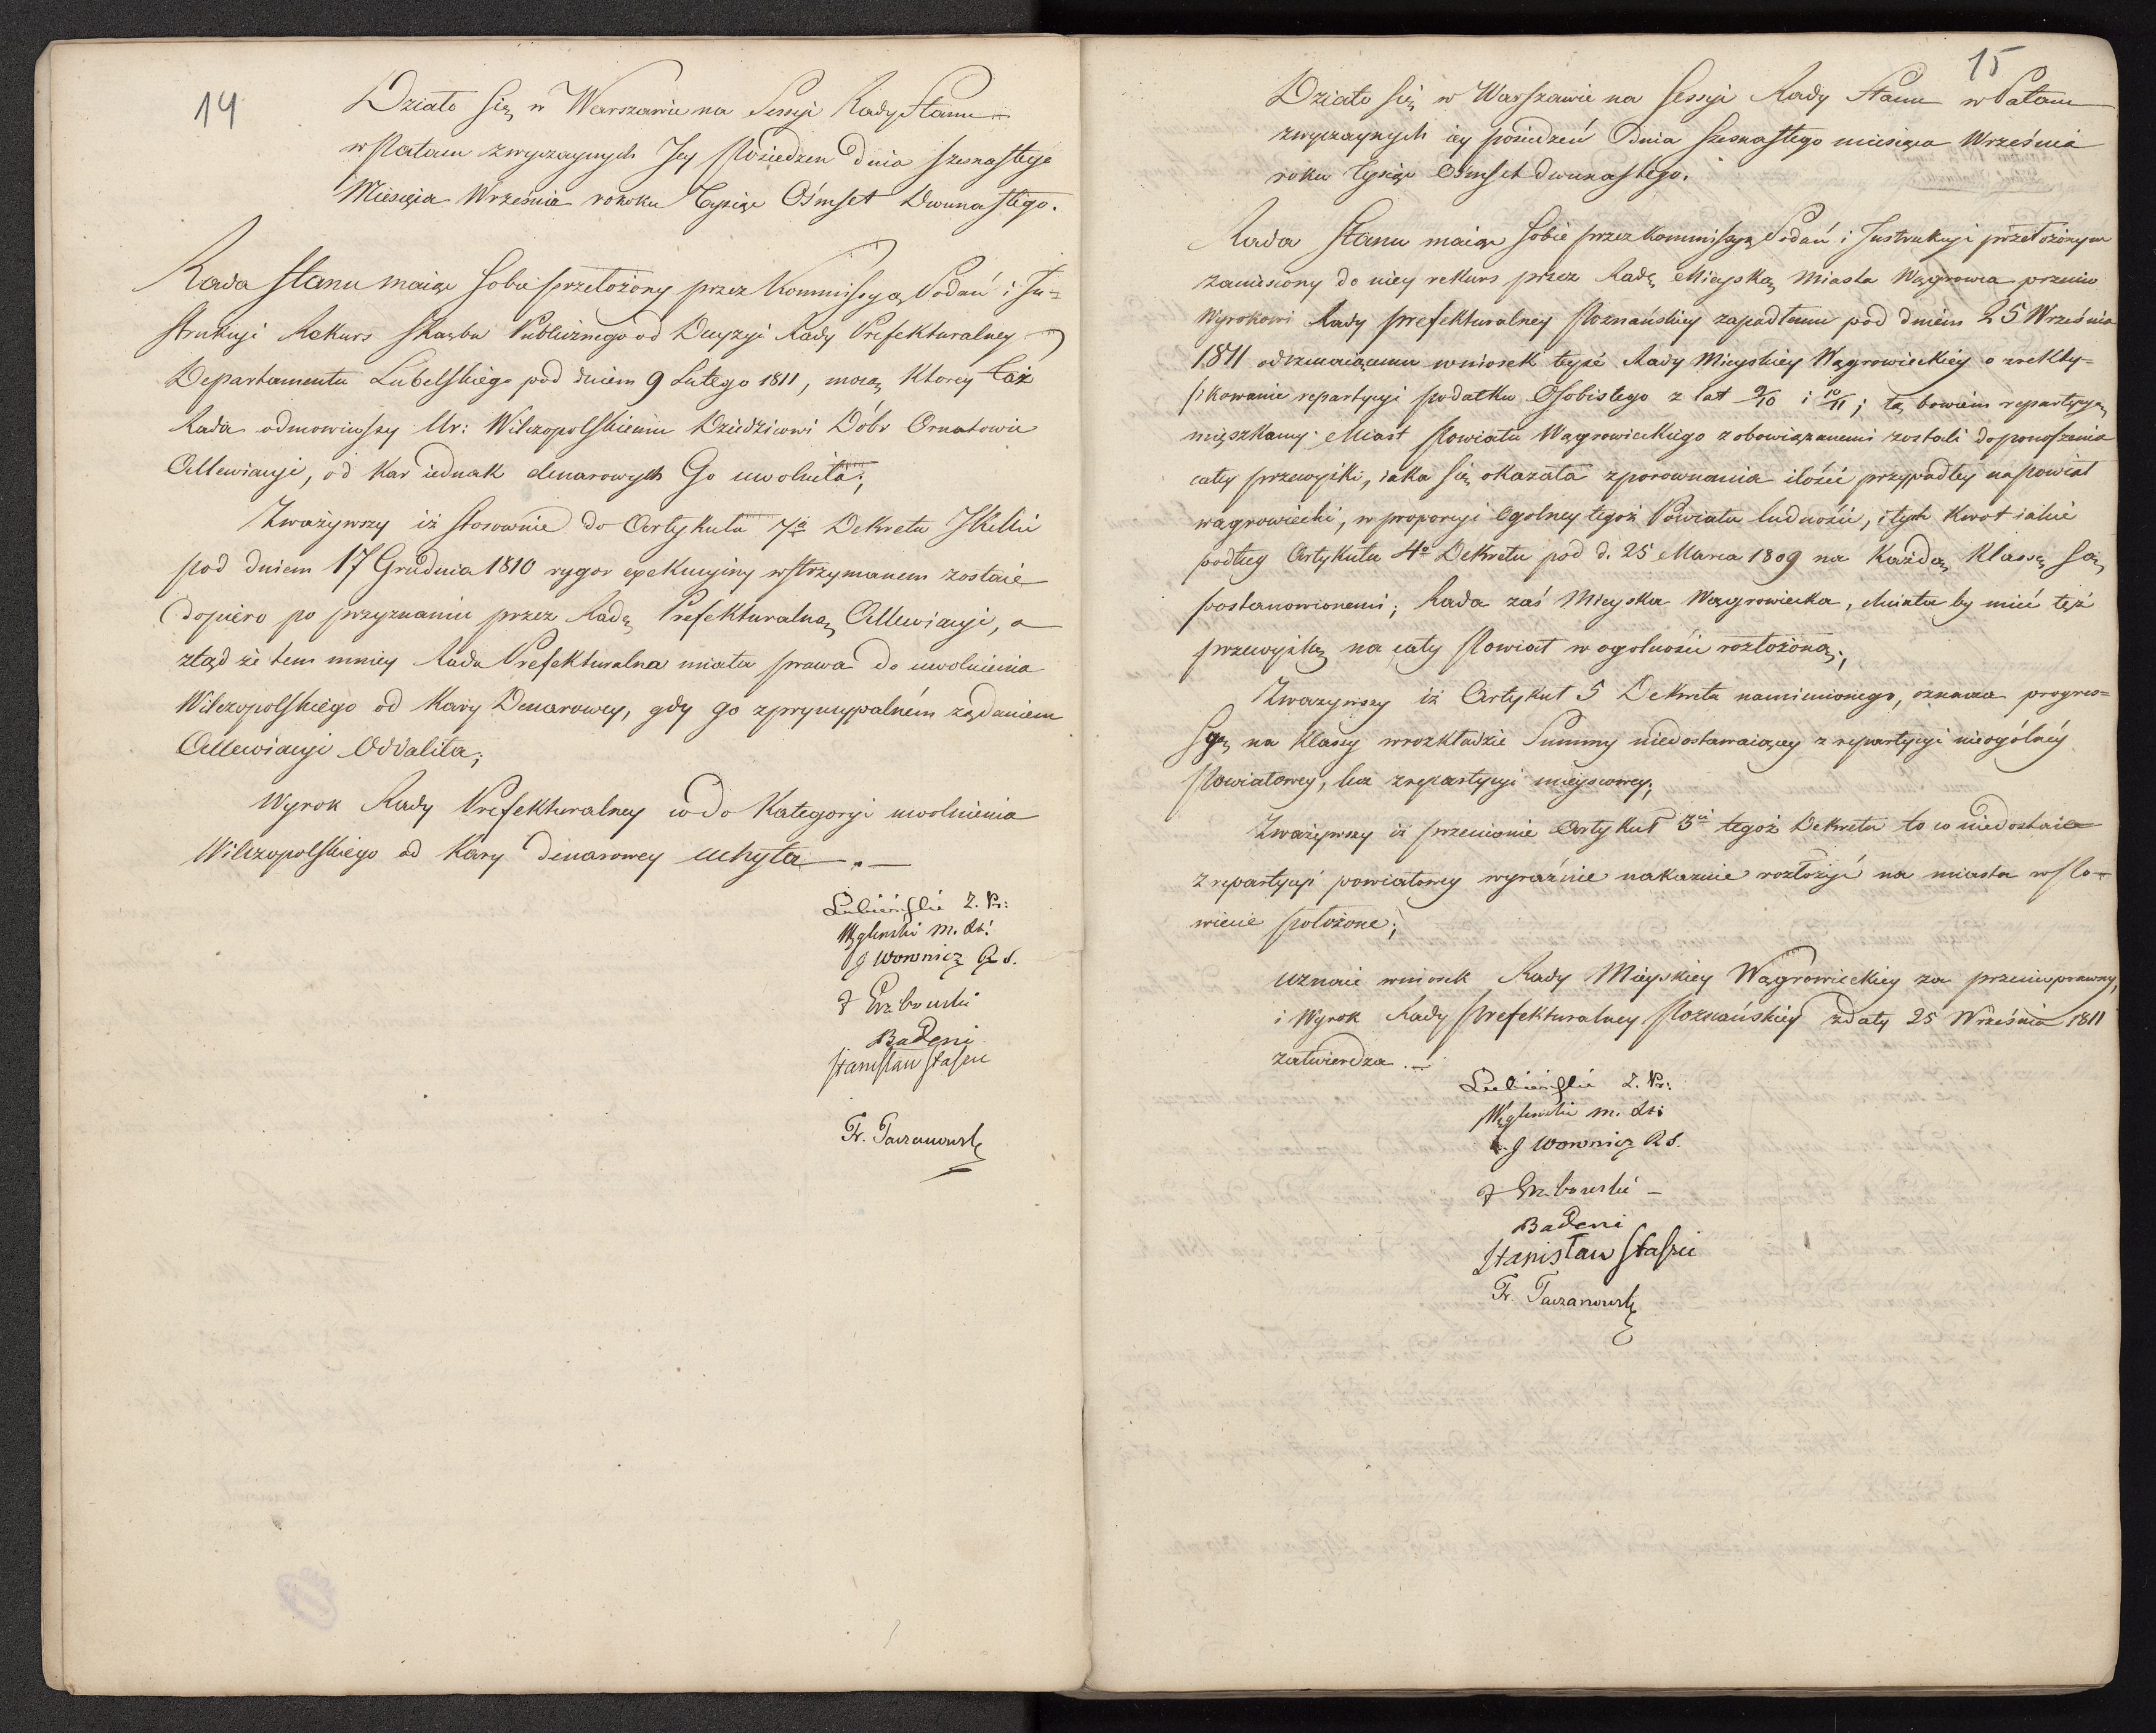 14
Działo się w Warszawie na Sessyi Rady Stanu
w Pałacu zwyczaynych Jey Posiedzen dnia szesnastego
Miesiąca Września rokoku Tysiąc Ośmset Dwunastego.
Rada Stanu maiąc sobie przełożony przez Kommissyą Podań i In=
strukcyi Rekurs Skarbu Publicznego od Decyzyi Rady Prefekturalney
Departamentu Lubelskiego pod dniem 9 Lutego 1811, mocą ktorey taż
Rada odmowiwszy Ur: Wilczopolskiemu Dziedzicowi Dóbr Ornatowic
Allewiacyi, od kar iednak denarowych Go uwolniła;
Zważywszy iż stosownie do Artykułu 7o Dekretu JKMci
pod dniem 17 Grudnia 1810 rygor exekucyiny wstrzymanem zostaie
dopiero po przyznaniu przez Radę Prefekturalną Allewiacyi, a
ztąd że tem mniey Rada Prefekturalna miała prawa do uwolnienia
Wilczopolskiego od Kary Denarowey, gdy go z pryncypalném żądaniem
Allewiacyi Oddaliła;
Wyrok Rady Prefekturalney co do Kategoryi uwolnienia
Wilczopolskiego od Kary denarowey uchyla.—
Lubieński Z. Pr:
Węglenski m. St:
J Woronicz R S.
Badeni
Stanisław Staszic
Fr. Taczanowski
15
Działo się w Warszawie na sessyi Rady Stanu w Pałacu
zwyczaynych iey posiedzeń Dnia szesnastego miesiąca Września
roku tysiąc Ośmset dwunastego.
Rada Stanu maiąc sobie przez Kommissyą Podań i Instrukcyi przełożonym
zaniesiony do niey rekurs przez Radę Mieyską Miasta Wągrowca przeciw
Wyrokowi Rady prefekturalney Poznańskiey zapadłemu pod dniem 25 Września
1811 odrzucaiącemu wniosek teyże Rady Mieyskiey Wągrowieckiey o zrekty=
fikowanie repartycyi podatku Osobistego z lat 9/10 i 10/11; tą bowiem repartycyą
mieszkańcy Miast Powiatu Wągrowieckiego zobowiązanemi zostali do ponoszenia
całey przewyżki, iaka się okazała z porownania ilości przypadłey na powiat
wągrowiecki, w proporcyi Ogolney tegoż Powiatu ludności, i tych kwot iakie
podług Artykułu 4o Dekretu pod d. 25 Marca 1809 na każdą klassę są
postanowionemi; Rada zaś Mieyska Wągrowiecka, chciała by mieć też
przewyżkę na cały Powiat w ogolności rozłożoną;
Zwazywszy iż Artykuł 5 Dekretu namienionego, oznacza progres=
syą na klassy w rozkładzie Summy niedostawaiącey z repartycyi nieogólnéy
Powiatowey, lecz z repartycyi mieyscowey;
Zważywszy iż przeciwnie Artykuł 3ci tegoż Dekretu to co niedostaie
z repartycyi powiatowey wyraźnie nakazuie rozłożyć na miasta w Po=
wiecie położone;
Uznaie wniosek Rady Mieyskiey Wągrowieckiey za przeciwprawny,
i Wyrok Rady Prefekturalney Poznańskiey z daty 25 Września 1811
zatwierdza.—
Lubieński Z. Pr:
Węglenski m. St:
J Woronicz R S.
Badeni
Stanisław Staszic
Fr. Taczanowski